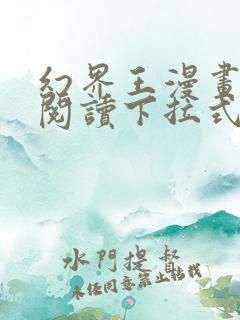 幻界王漫畫
閱讀下拉式
水門提督
未任同意禁止轉載